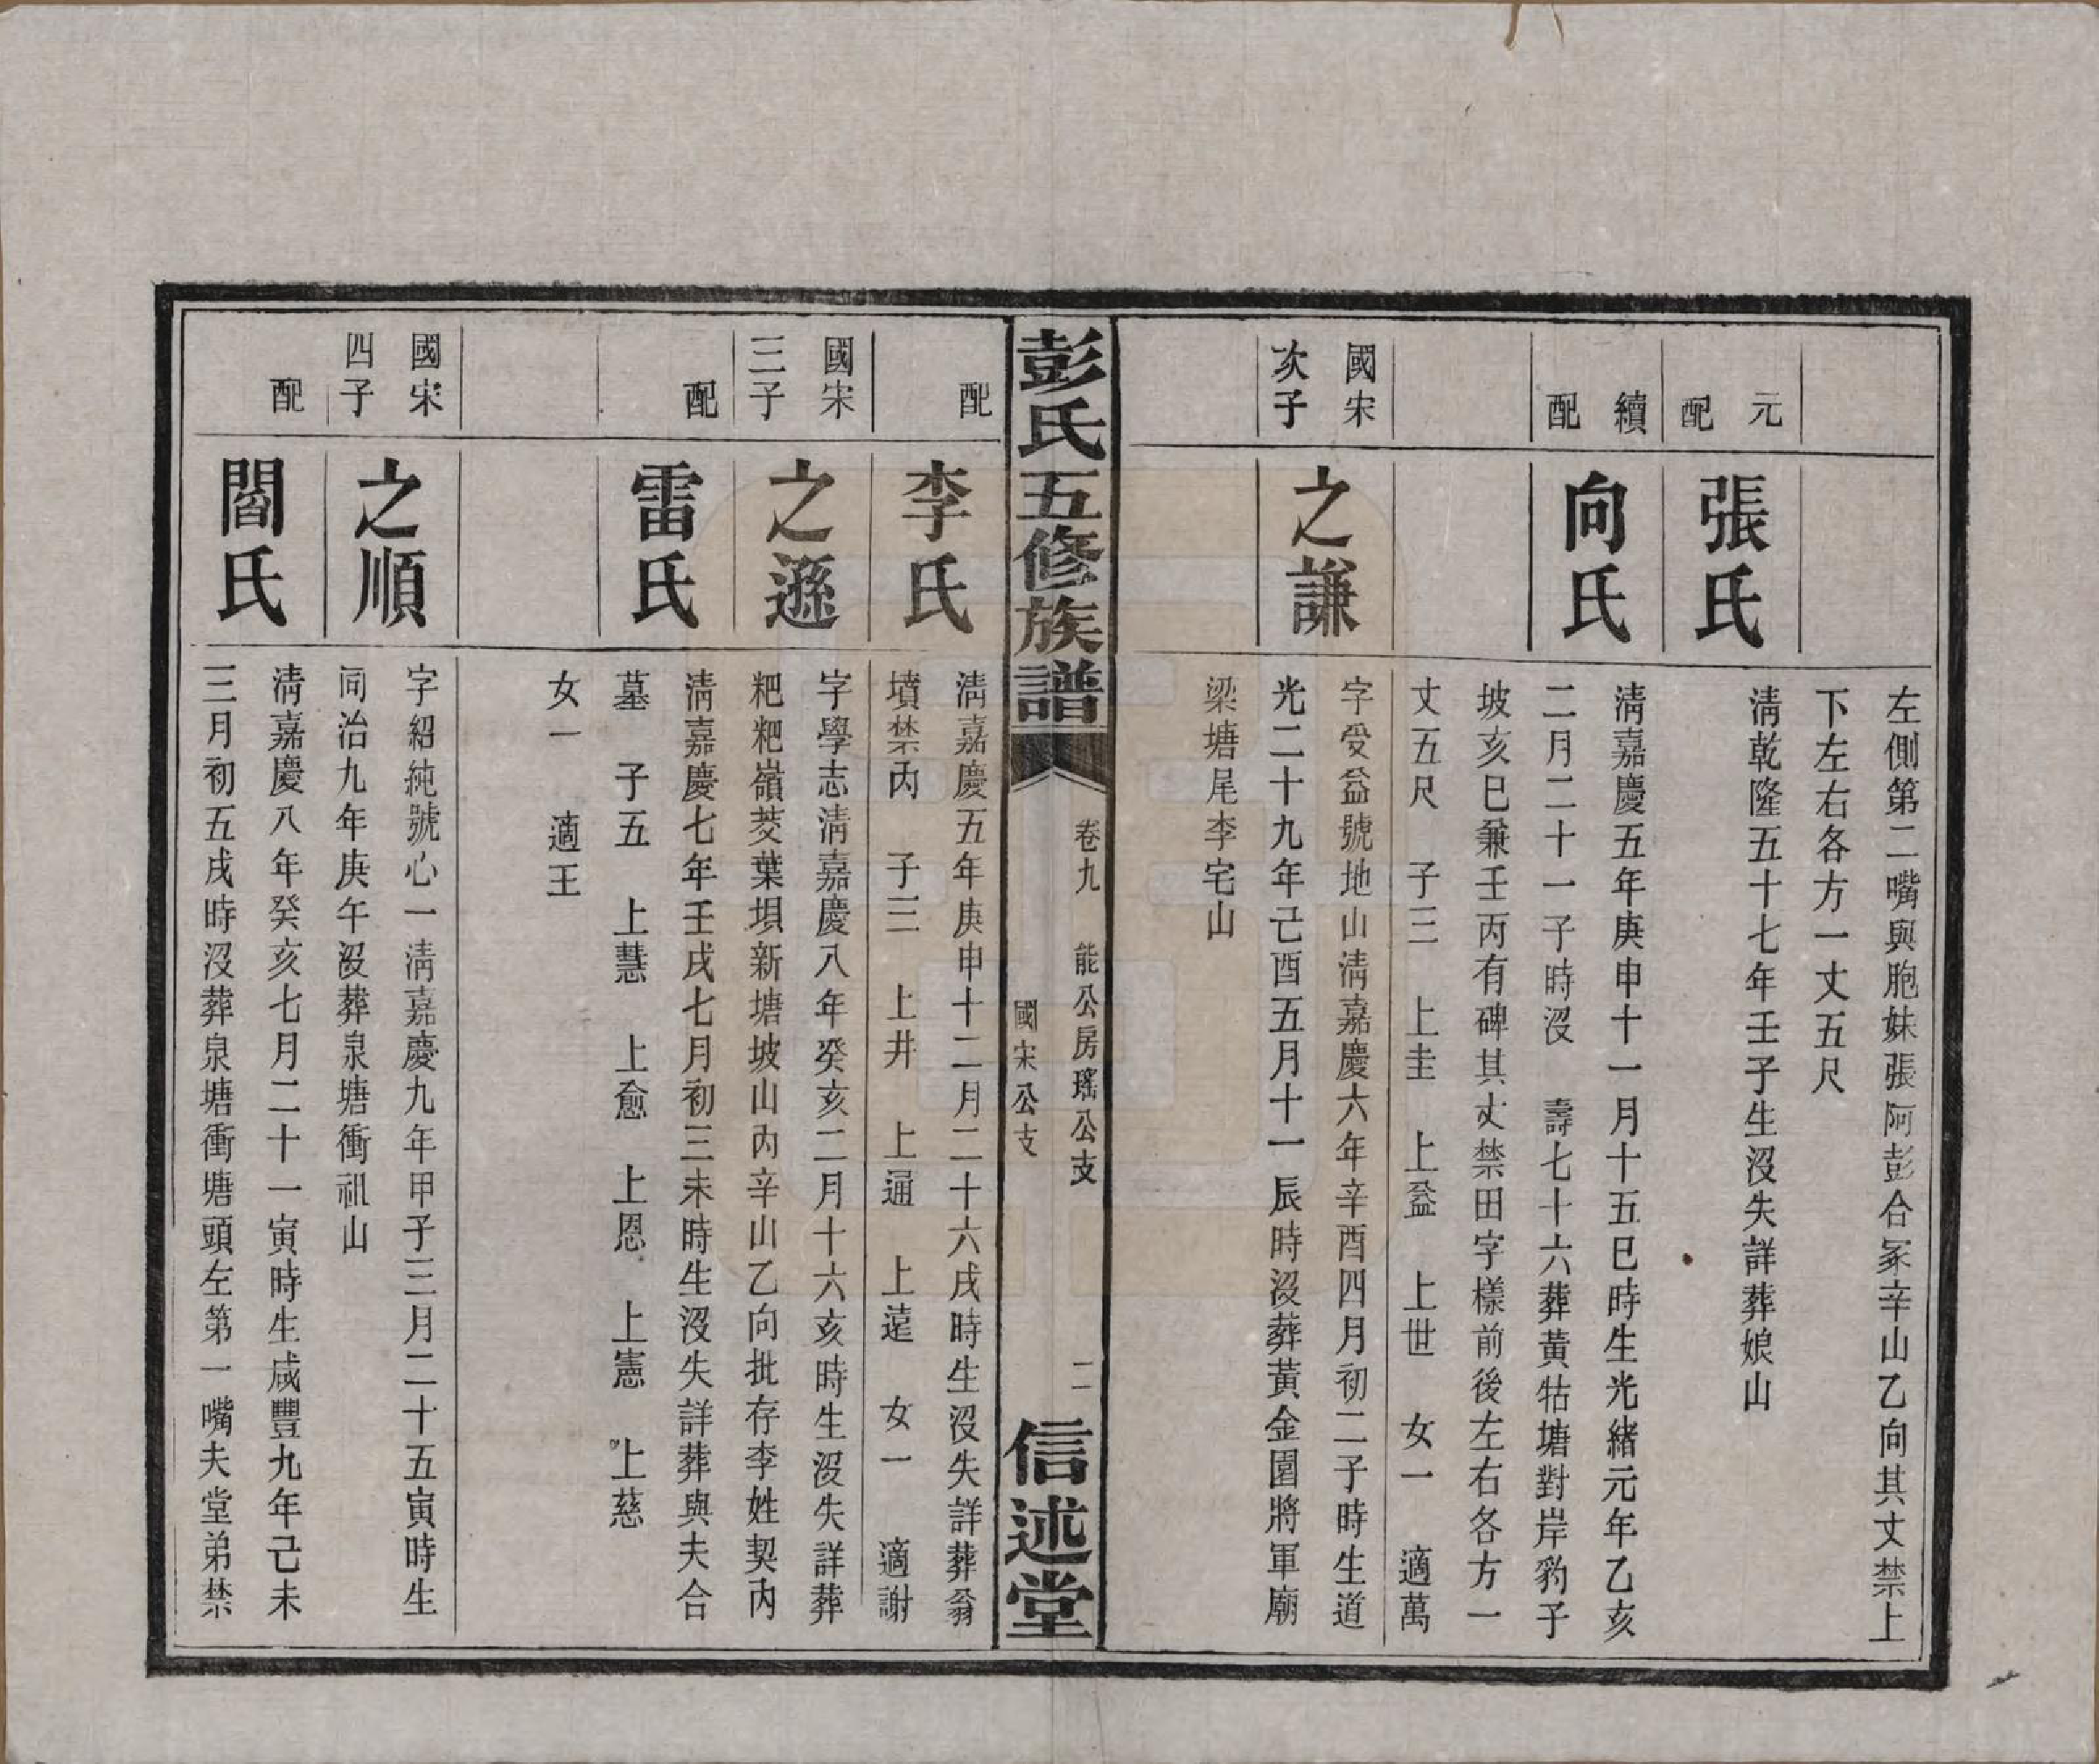 左側第二嘴與胞妹張阿彭合冢辛山乙向其丈禁上
下左右各方一丈五尺
元
配
張氏
清乾隆五十七年壬子生沒失詳葬娘山
續
配
向氏
清嘉慶五年庚申十一月十五巳時生光緒元年乙亥
二月二十一子時沒 壽七十六葬黃牯塘對岸豹子
坡亥巳兼壬丙有碑其丈禁田字樣前後左右各方一
丈五尺 子三 上圭 上益 上世 女一 適萬
國宋
次子
之謙
字受益號地山清嘉慶六年辛酉四月初二子時生道
光二十九年己酉五月十一辰時沒葬黃金園將軍廟
梁塘尾李宅山
彭氏五修族譜
卷九 能公房瑤公支
國宋公支
二
信述堂
配
李氏
清嘉慶五年庚申十二月二十六戌時生沒失詳葬翁
墳禁內 子三 上井 上通 上遠 女一 適謝
國宋
三子
之遜
字學志清嘉慶八年癸亥二月十六亥時生沒失詳葬
粑粑嶺茭葉垻新塘坡山內辛山乙向批存李姓契內
配
雷氏
清嘉慶七年壬戌七月初三未時生沒失詳葬與夫合
墓 子五 上慧 上愈 上恩 上憲 上慈
女一 適王
國宋
四子
之順
字紹純號心一清嘉慶九年甲子三月二十五寅時生
同治九年庚午沒葬泉塘衝祖山
配
閻氏
清嘉慶八年癸亥七月二十一寅時生咸豐九年己未
三月初五戌時沒葬泉塘衝塘頭左第一嘴夫堂弟禁